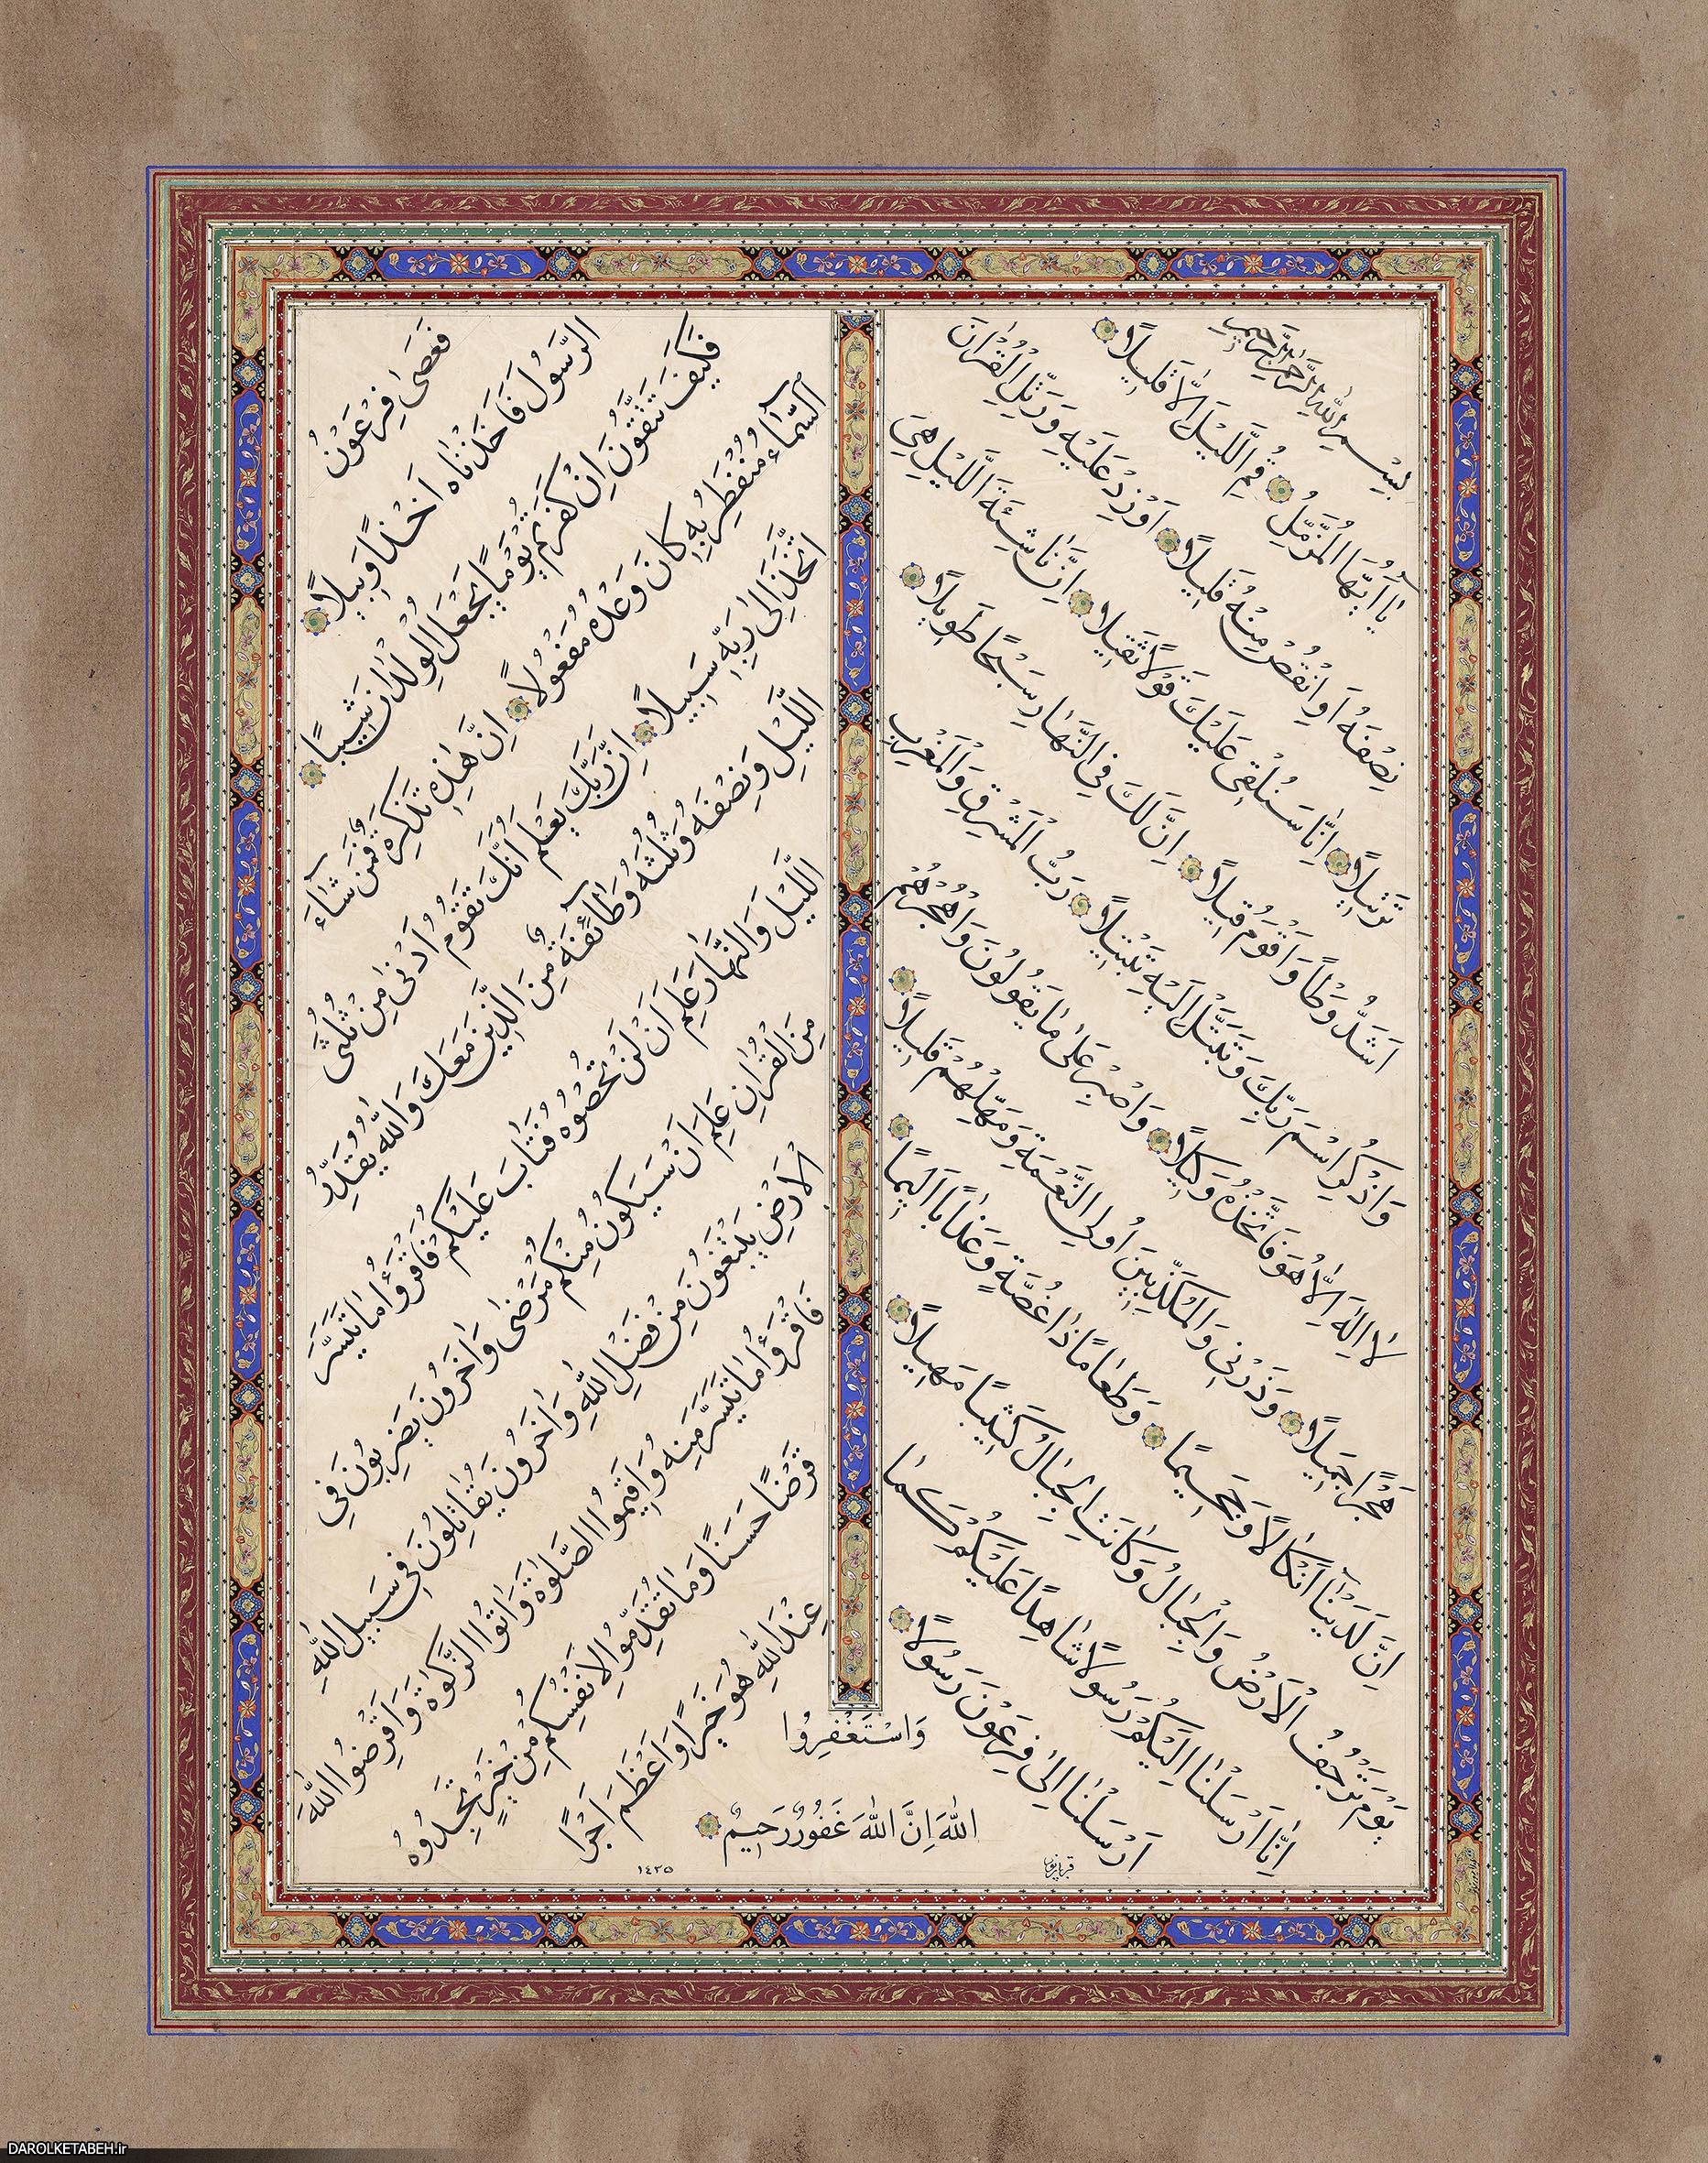 بِسْمِ اللهِ الرَّحْمٰنِ الرَّحِيمِ
يٰٓا اَيُّهَا الْمُزَّمِّلُ قُمِ الَّليْلَ اِلَّا قَلِيلاً
نِصْفَهُ اَوِ انْقُصْ مِنْهُ قَلِيلاً اَوْ زِدْ عَلَيْهِ وَرَتِّلِ الْقُرْاٰنَ
تَرْتِيلاً اِنّٰا سَنُلْقِى عَلَيْكَ قَوْلاً ثَقِيلاً اِنَّ نٰاشِئَةَ الَّليْلِ هِىَ
اَشَدُّ وَطْاً وَاَقْوَمُ قِيلاً اِنَّ لَكَ فِى النَّهٰارِ سَبْحًا طَوِيلاً
وَاذْكُرِ اسْمَ رَبِّكَ وَتَبَتَّلْ اِلَيْهِ تَبْتِيلاً رَبُّ الْمَشْرِقِ وَالْمَغْرِبِ
لاٰ اِلٰهَ اِلَّا هُوَ فَاتَّخِذْهُ وَكِيلاً وَاصْبِرْ عَلىٰ مٰا يَقُولُونَ وَاهْجُرْهُمْ
هَجْرًا جَمِيلاً وَذَرْنِى وَالْمُكَذِّبِينَ اُولِى النَّعْمَةِ وَمَهِّلْهُمْ قَلِيلاً
اِنَّ لَدَيْنٰٓا اَنْكٰالاً وَجَحِيمًا وَطَعٰامًا ذٰا غُصَّةٍ وَعَذٰابًا اَلِيمًا
يَوْمَ تَرْجُفُ الْاَرْضُ وَالْجِبٰالُ وَكٰانَتِ الْجِبٰالُ كَثِيبًا مَهِيلاً
اِنّٰا اَرْسَلْنٰا اِلَيْكُمْ رَسُولاً شٰاهِدًا عَلَيْكُمْ كَمٰا
اَرْسَلْنٰا اِلىٰ فِرْعَوْنَ رَسُولاً
فَعَصىٰ فِرْعَوْنُ
الرَّسُولَ فَاَخَذْنٰاهُ اَخْذًا وَبِيلاً
فَكَيْفَ تَتَّقُونَ اِنْ كَفَرْتُمْ يَوْمًا يَجْعَلُ الْوِلْدٰانَ شِيبًا
اَلسَّمٰٓاءُ مُنْفَطِرٌ بِهِ كٰانَ وَعْدُهُ مَفْعُولاً اِنَّ هٰذِهِ تَذْكِرَةٌ فَمَنْ شٰٓاءَ
اتَّخَذَ اِلىٰ رَبِّهِ سَبِيلاً اِنَّ رَبَّكَ يَعْلَمُ اَنَّكَ تَقُومُ اَدْنىٰ مِنْ ثُلُثَىِ
الَّليْلِ وَنِصْفَهُ وَثُلُثَهُ وَطٰٓائِفَةٌ مِنَ الَّذِينَ مَعَكَ وَاللهُ يُقَدِّرُ
الَّليْلَ وَالنَّهٰارَ عَلِمَ اَنْ لَنْ تُحْصُوهُ فَتٰابَ عَلَيْكُمْ فَاقْرَؤُا مٰا تَيَسَّرَ
مِنَ الْقُرْاٰنِ عَلِمَ اَنْ سَيَكُونُ مِنْكُمْ مَرْضىٰ وَاٰخَرُونَ يَضْرِبُونَ فِى
الْاَرْضِ يَبْتَغُونَ مِنْ فَضْلِ اللهِ وَاٰخَرُونَ يُقٰاتِلُونَ فِى سَبِيلِ اللهِ
فَاقْرَؤُا مٰا تَيَسَّرَ مِنْهُ وَاَقِيمُوا الصَّلٰوةَ وَاٰتُوا الزَّكٰوةَ وَاَقْرِضُوا اللهَ
قَرْضًا حَسَنًا وَمٰا تُقَدِّمُوا لِاَنْفُسِكُمْ مِنْ خَيْرٍ تَجِدُوهُ
عِنْدَ اللهِ هُوَ خَيْرًا وَاَعْظَمَ اَجْرًا
وَاسْتَغْفِرُوا
اللهَ اِنَّ اللهَ غَفُورٌ رَحِيمٌ
١٤٣٥
DAROLKETABEH.ir